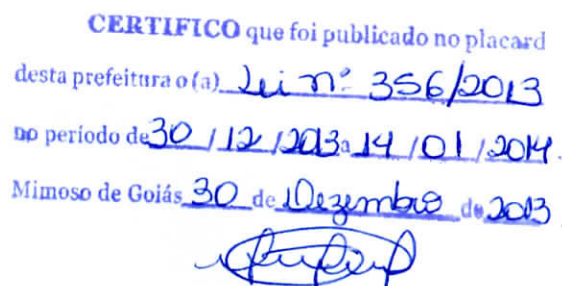 CERTIFICO que foi publicado no placard
desta prefeitura o (a) Lei nº 356/2013
no período de 30 / 12 / 2013 a 14 / 01 / 2014.
Mimoso de Goiás 30 de Dezembro de 2013